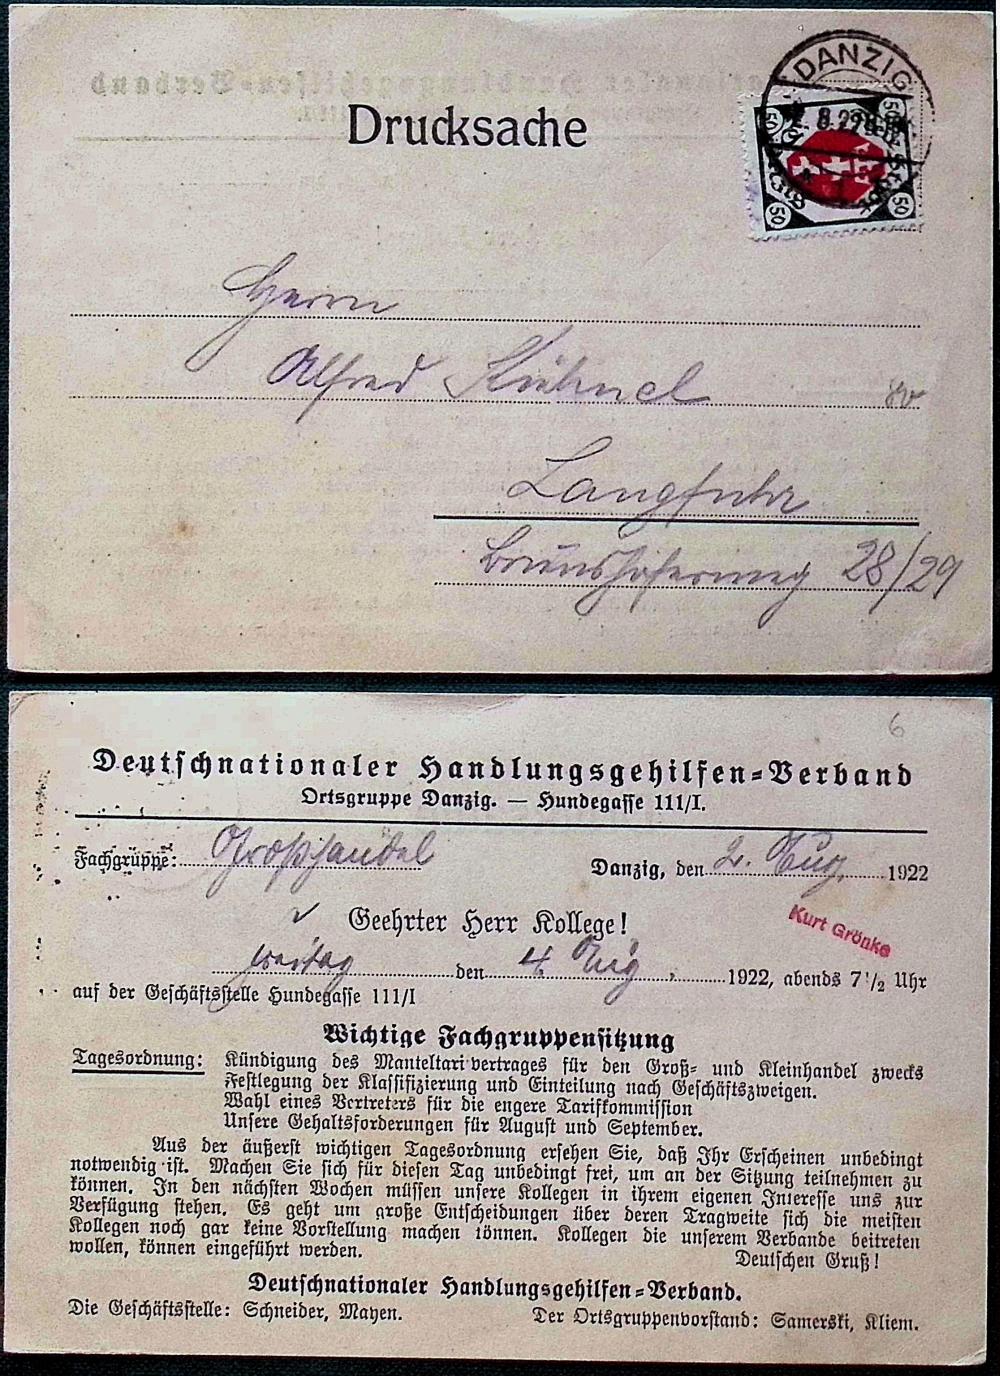 Drucksache
DANZIG
8.22
50 50
50 50
Herrn
Alfred Kühnel
Langfuhr
Brunshöferweg 28/29
6
Deutschnationaler Handlungsgehilfen-Verband
Ortsgruppe Danzig. — Hundegasse 111/I.
Fachgruppe: Großhandel
Danzig, den 2. Aug. 1922
Geehrter Herr Kollege!
Kurt Grönke
Freitag den 4. Aug. 1922, abends 7 1/2 Uhr
auf der Geschäftsstelle Hundegasse 111/I
Wichtige Fachgruppensitzung
Tagesordnung: Kündigung des Manteltarifvertrages für den Groß- und Kleinhandel zwecks
Festlegung der Klassifizierung und Einteilung nach Geschäftszweigen.
Wahl eines Vertreters für die engere Tarifkommission
Unsere Gehaltsforderungen für August und September.
Aus der äußerst wichtigen Tagesordnung ersehen Sie, daß Ihr Erscheinen unbedingt
notwendig ist. Machen Sie sich für diesen Tag unbedingt frei, um an der Sitzung teilnehmen zu
können. In den nächsten Wochen müssen unsere Kollegen in ihrem eigenen Interesse uns zur
Verfügung stehen. Es geht um große Entscheidungen über deren Tragweite sich die meisten
Kollegen noch gar keine Vorstellung machen können. Kollegen die unserem Verbande beitreten
wollen, können eingeführt werden.
Deutschen Gruß!
Deutschnationaler Handlungsgehilfen-Verband.
Die Geschäftsstelle: Schneider, Mayen.
Der Ortsgruppenvorstand: Samerski, Kliem.